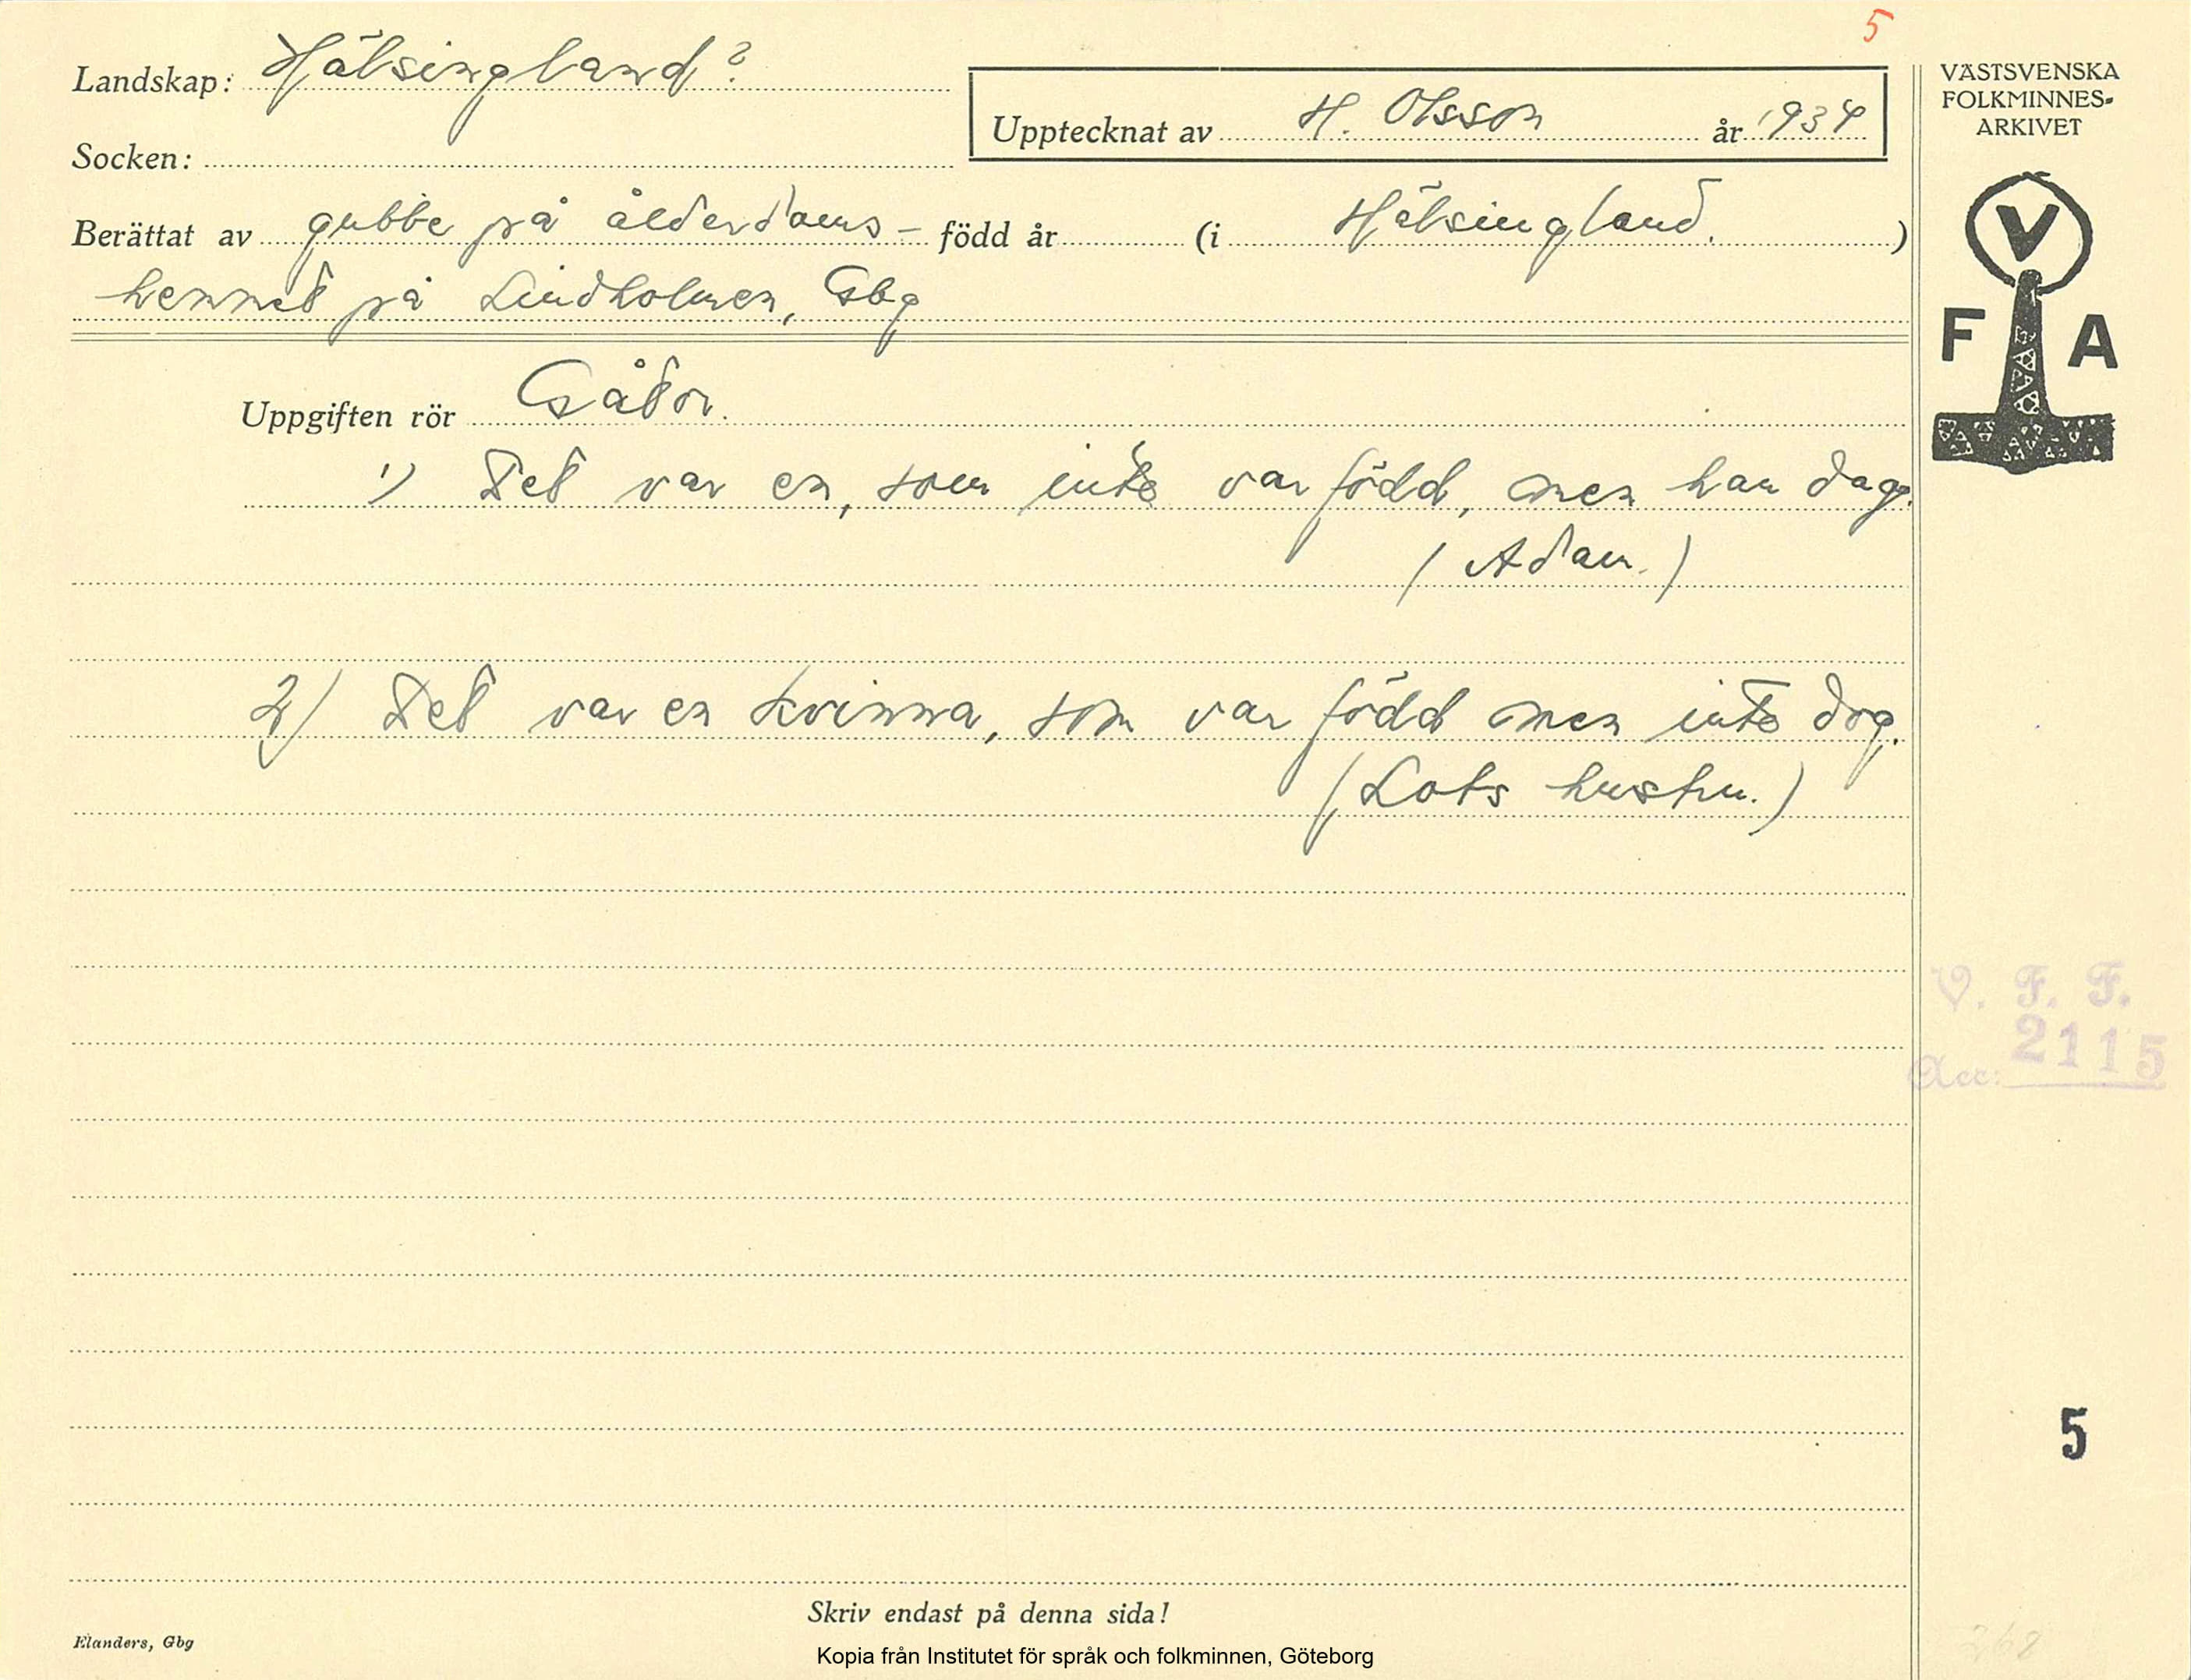 5
Landskap: Hälsingland?
Upptecknat av H. Olsson år 1934
Socken:
Berättat av gubbe på ålderdoms- född år (i Hälsingland.)
hemmet på Lindholmen, Gbg
Uppgiften rör Gåtor.
1) Det var en, som inte var född, men han dog.
(Adam.)
2) Det var en kvinna, som var född men inte dog.
(Lots hustru.)
VÄSTSVENSKA
FOLKMINNES-
ARKIVET
V
F A
V. F. F.
Acc: 2115
5
Skriv endast på denna sida!
Elanders, Gbg
Kopia från Institutet för språk och folkminnen, Göteborg